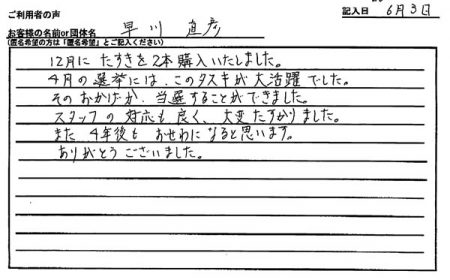 ご利用者の声
記入日 6月3日
お客様の名前or団体名 早川 直彦
(匿名希望の方は「匿名希望」とご記入ください)
12月に たすきを2本購入いたしました。
4月の選挙には、このタスキが大活躍でした。
そのおかげか、当選することができました。
スタッフの対応も良く、大変たすかりました。
また 4年後も おせわになると思います。
ありがとうございました。